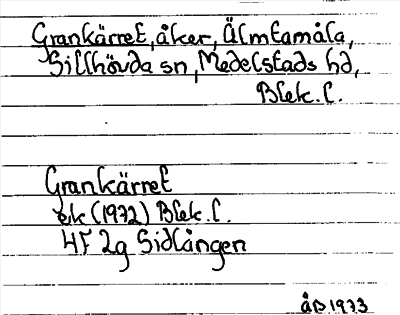 Grankärret, åker, Älmtamåla,
Sillhövda sn, Medelstads hd,
Blek. l.
Grankärret
ek (1972) Blek. l.
4F 2g Sidlången
ÅP 1973